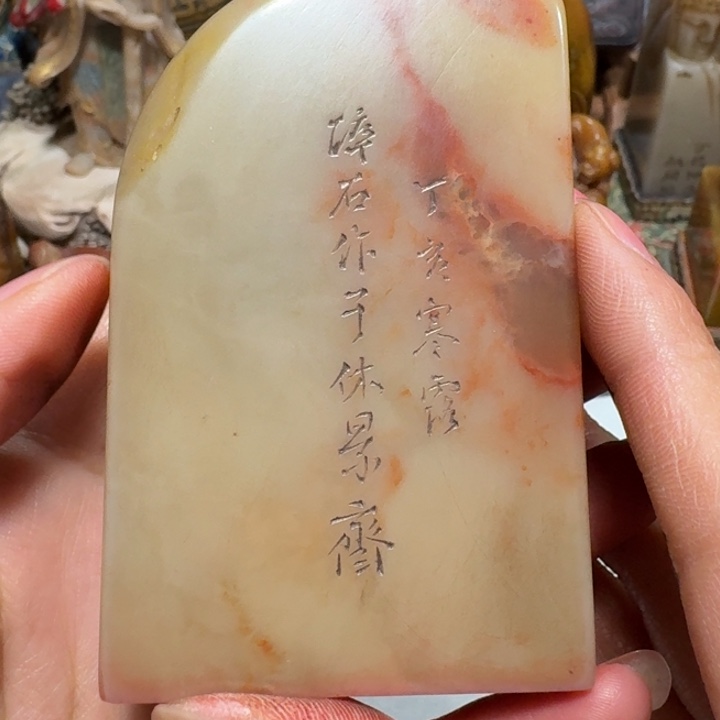 丁亥寒露
石作于休景齋